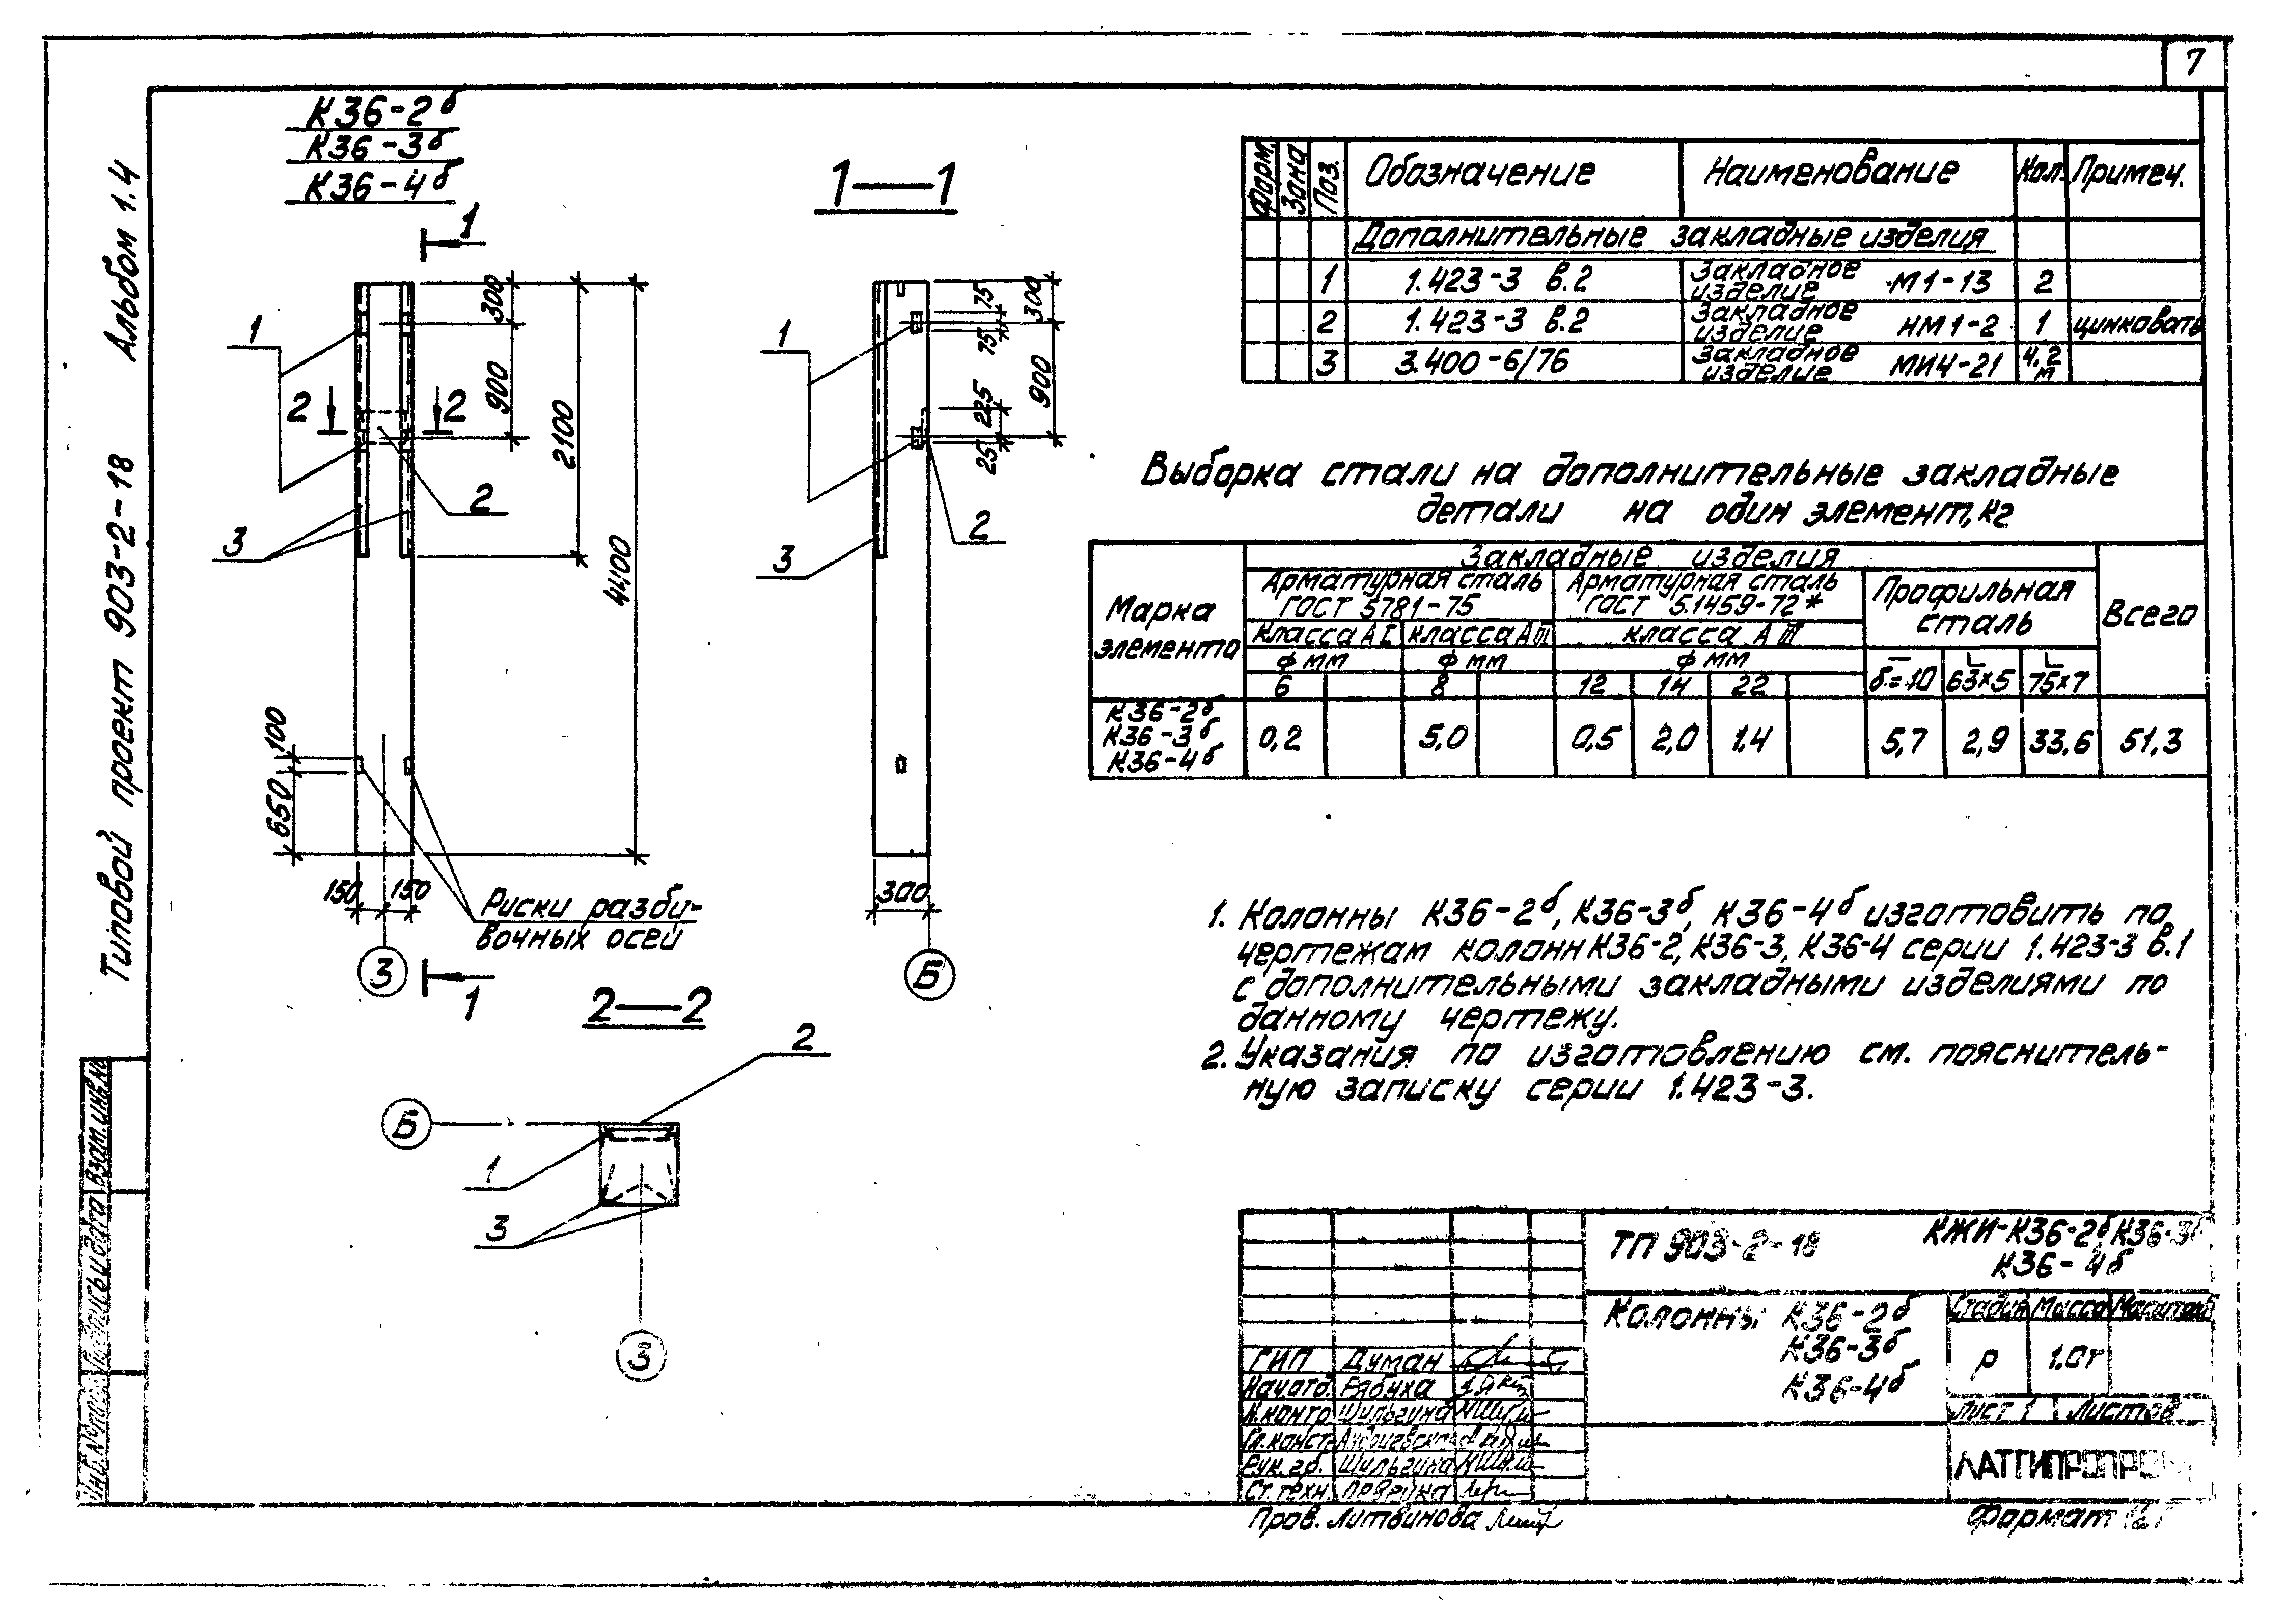 7
Типовой проект 903-2-18 Альбом 1.4
К36-2б
К36-3б
К36-4б
1
1
2 2
2
3
300
900
2100
4400
100
650
150 150
Риски разби-
вочных осей
3
1
1—1
1
2
3
75
300
75
900
225
25
300
Б
2—2
2
Б
1
3
3
Форм. Зона Поз. Обозначение Наименование Кол. Примеч.
Дополнительные закладные изделия
1 1.423-3 в.2 Закладное изделие М1-13 2
2 1.423-3 в.2 Закладное изделие НМ1-2 1 цинковать
3 3.400-6/76 Закладное изделие МИ4-21 4.2 м
Выборка стали на дополнительные закладные
детали на один элемент, кг
Марка элемента
Закладные изделия
Всего
Арматурная сталь ГОСТ 5781-75
Арматурная сталь ГОСТ 5.1459-72*
Профильная сталь
класса АI класса АIII класса АIII
ф мм ф мм ф мм
6 8 12 14 22 б=10 63×5 75×7
К36-2б
К36-3б
К36-4б
0,2 5,0 0,5 2,0 1,4 5,7 2,9 33,6 51,3
1. Колонны К36-2б, К36-3б, К36-4б изготовить по
чертежам колонн К36-2, К36-3, К36-4 серии 1.423-3 в.1
с дополнительными закладными изделиями по
данному чертежу.
2. Указания по изготовлению см. пояснитель-
ную записку серии 1.423-3.
ТП 903-2-18
КЖИ-К36-2б, К36-3б
К36-4б
Колонны К36-2б
К36-3б
К36-4б
Стадия Масса Масштаб
Р 1.0т
Лист 1 Листов
ГИП Думан
Нач.отд. Рябуха
Н.контр. Шульгина
Гл.конст.
Рук.гр. Шульгина
Ст.техн.
Пров. Литвинова
ЛАТГИПРОПРОМ
Формат 12г
Взам.инв.№
Подпись и дата
Инв.№ подл.